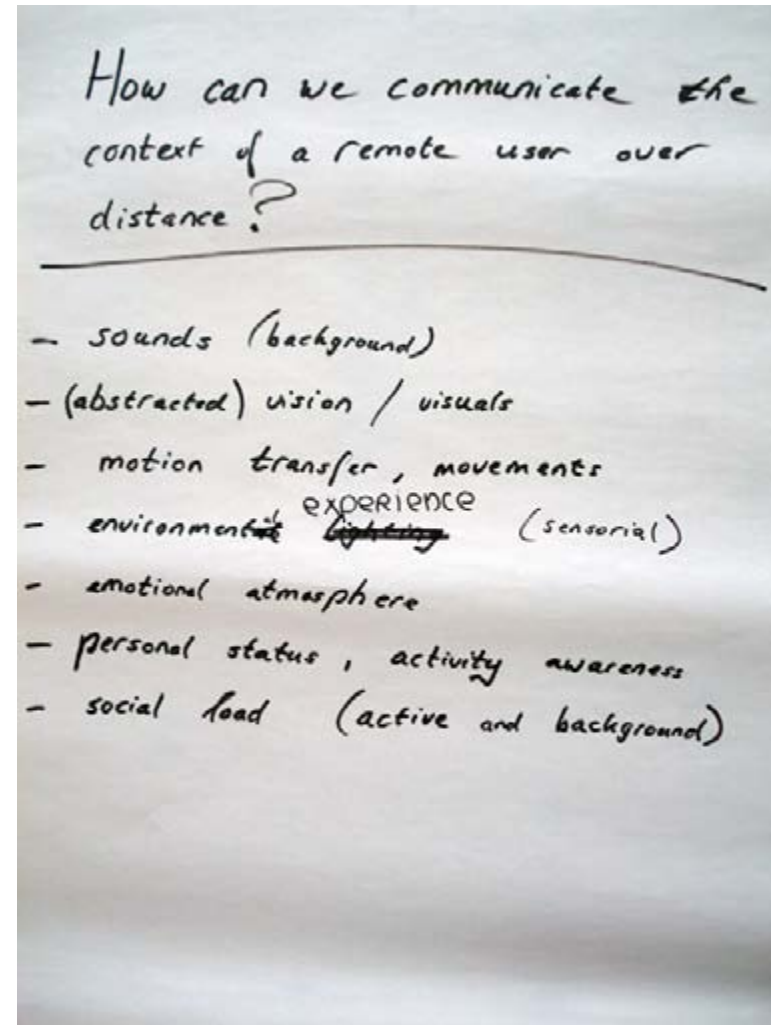 How can we communicate the
context of a remote user over
distance?
- sounds (background)
- (abstracted) vision / visuals
- motion transfer, movements
- environmental experience (sensorial)
- emotional atmosphere
- personal status, activity awareness
- social load (active and background)